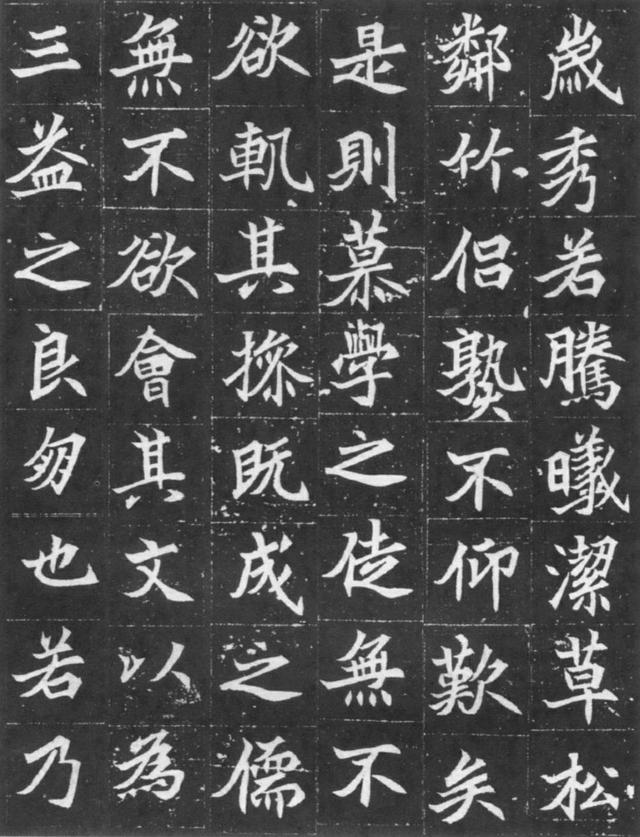 歲秀若騰曦潔草松
鄰竹侶孰不仰歎矣
是則慕學之徒無不
欲軌其操既成之儒
無不欲會其文以為
三益之良朋也若乃